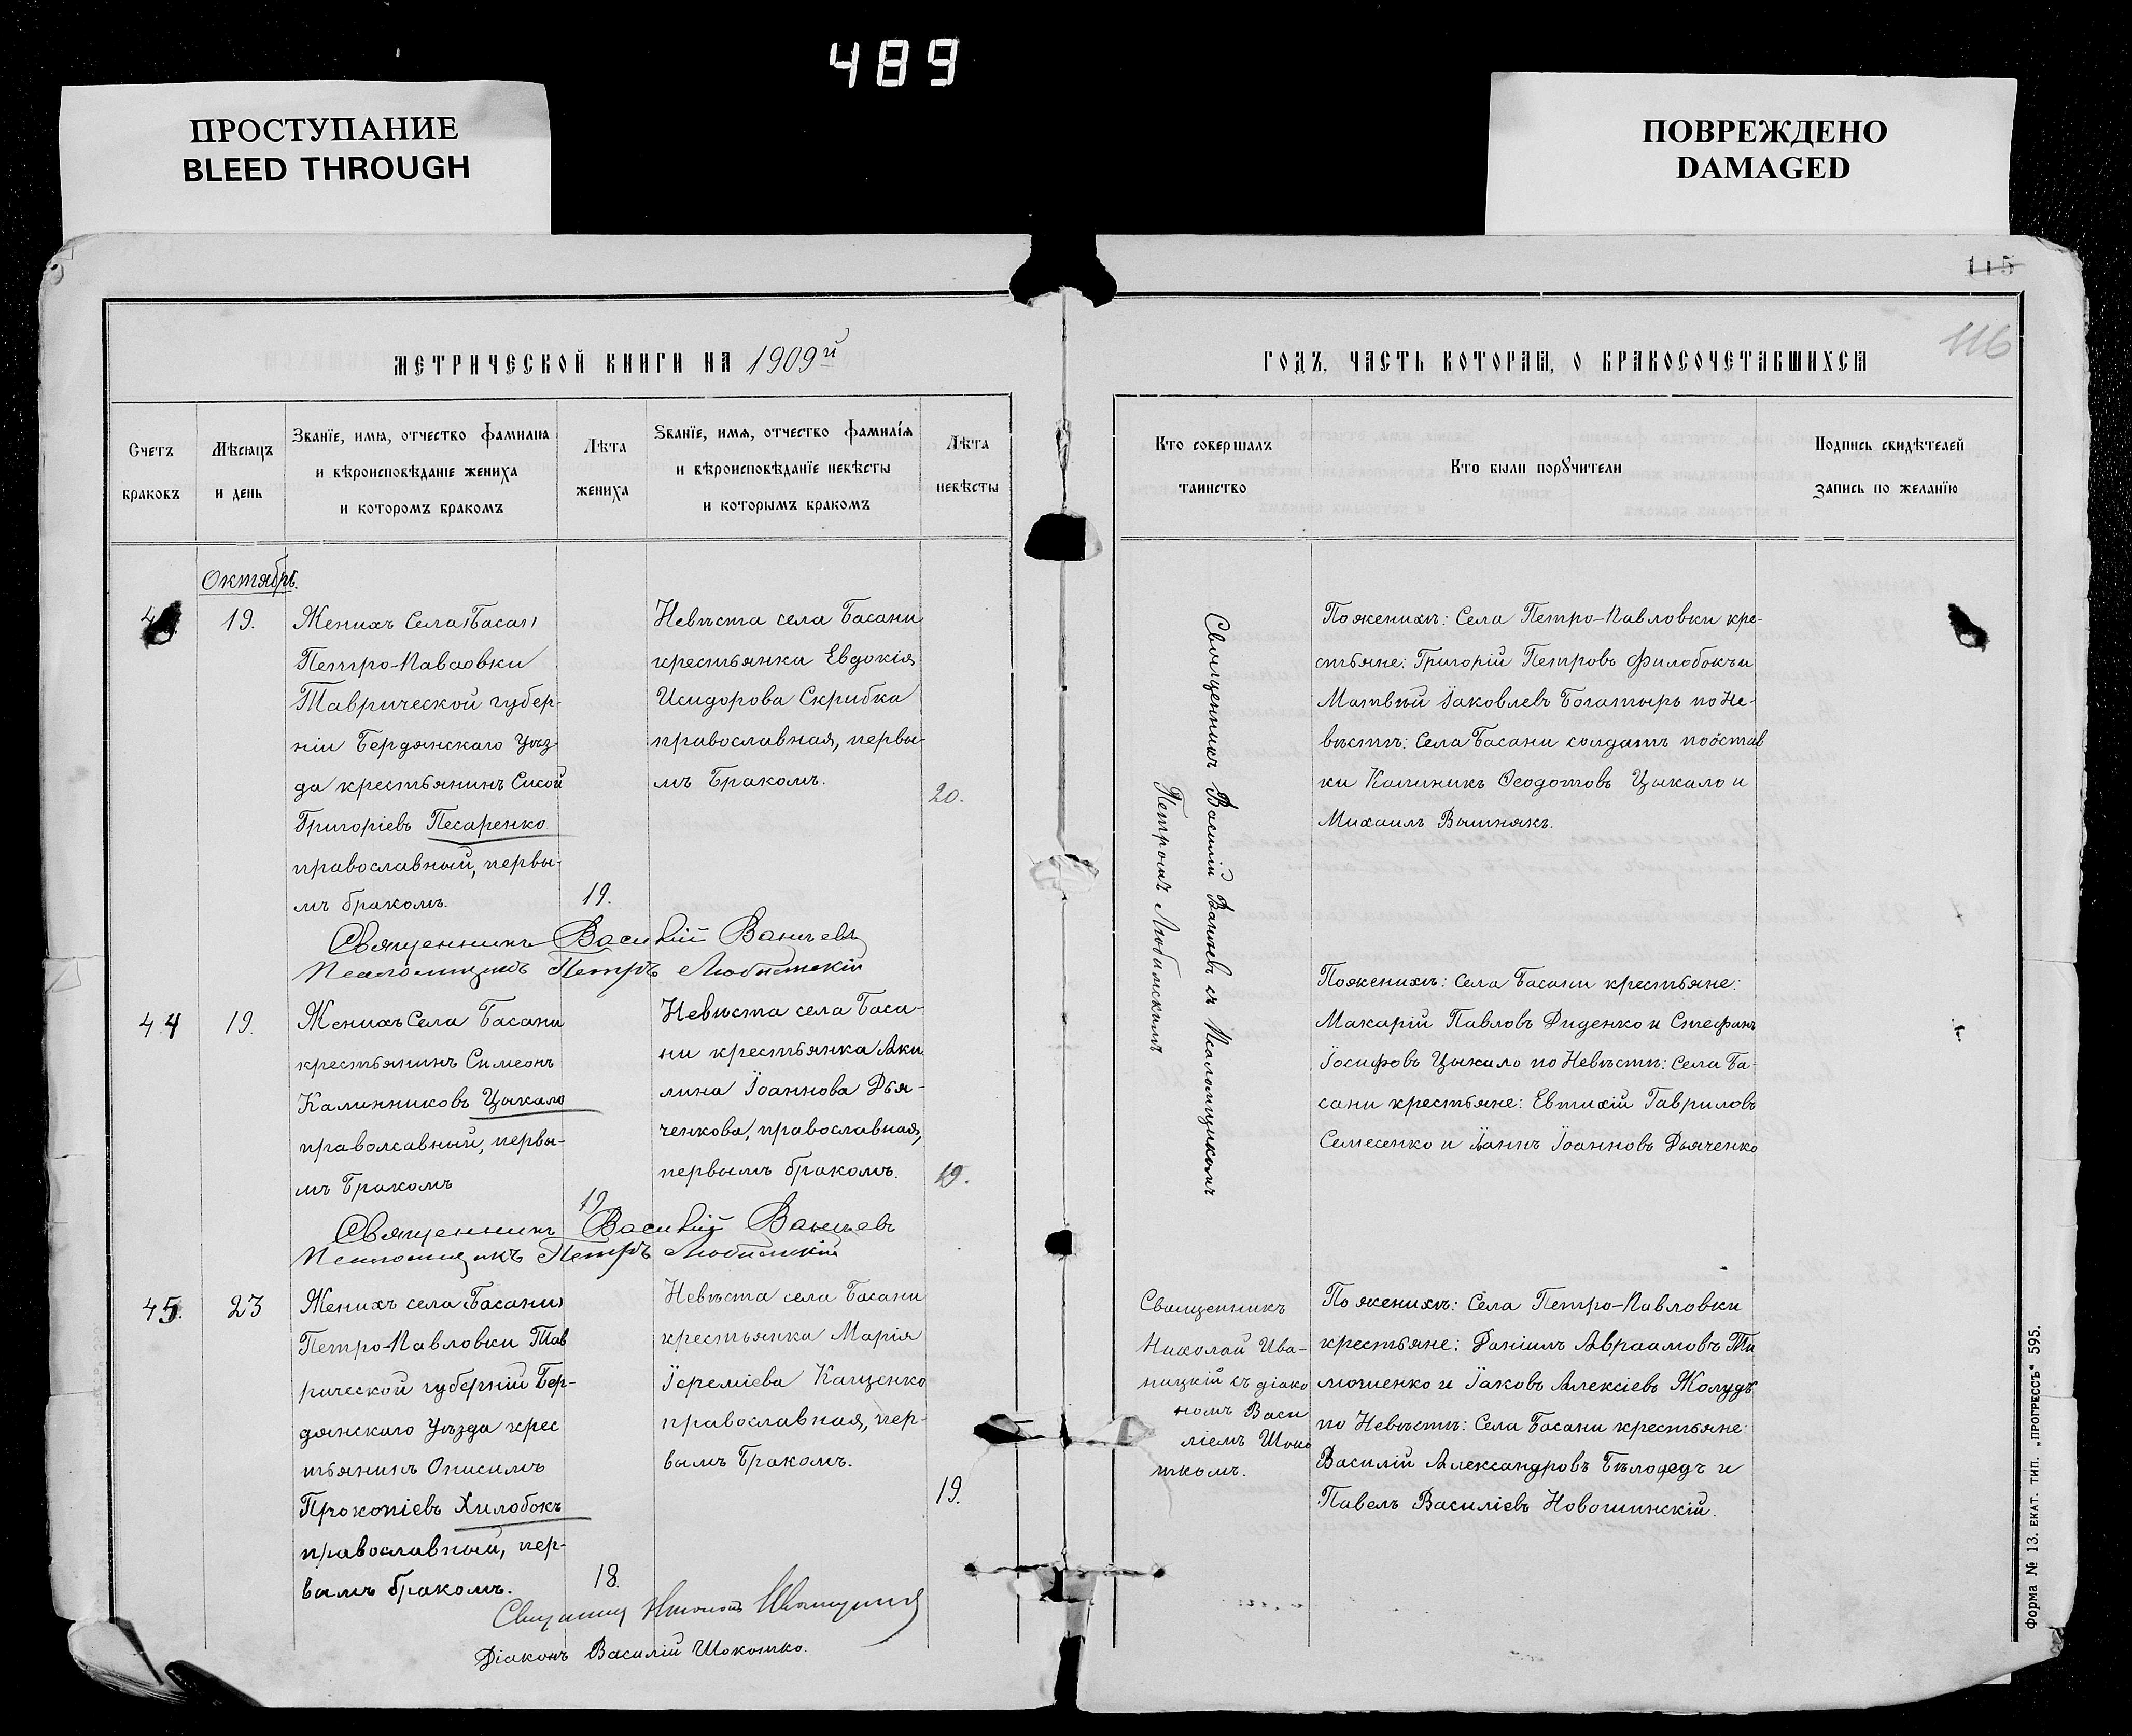 489
ПРОСТУПАНИЕ
BLEED THROUGH
ПОВРЕЖДЕНО
DAMAGED
115
116
МЕТРИЧЕСКОЙ КНИГИ НА 1909й
ГОДЪ, ЧАСТЬ КОТОРАЯ, О БРАКОСОЧЕТАВШИХСЯ
Счетъ
браковъ
Мѣсяцъ
и день
Званїе, имя, отчество фамилія
и вѣроисповѣданіе жениха
и которомъ бракомъ
Лѣта
жениха
Званїе, имя, отчество фамилїя
и вѣроисповѣданїе невѣсты
и которымъ бракомъ
Лѣта
невѣсты
Кто совершалъ
таинство
Кто были порꙋчители
Подпись свидѣтелей
запись по желанїю
Октябрь.
19.
Женихъ Села Басан
Петро-Павловки
Таврической губер-
ніи Бердянскаго Уѣз-
да крестьянинъ Сисой
Григоріевъ Песаренко
православный, первы-
мъ бракомъ.
19.
Невѣста села Басани
крестьянка Евдокія
Исидорова Скрибка
православная, первы-
мъ бракомъ.
20.
Священникъ Василій Ванчевъ
Псаломщикъ Петръ Любимскій
Священникъ Василій Ванчевъ съ Псаломщикомъ
Петромъ Любимскимъ
По женихѣ: Села Петро-Павловки кре-
стьяне: Григорій Петровъ Филобокъ и
Матвѣй Іаковлевъ Богатырь по Не-
вѣстѣ: Села Басани солдатъ по отстав
ки Калиникъ Ѳеодотовъ Цыкало и
Михаилъ Вишнякъ.
44
19.
Женихъ Села Басани
крестьянинъ Симеонъ
Калинниковъ Цыкало
праволсавный, первы-
мъ бракомъ
19
Невѣста села Баса-
ни крестьянка Аки
лина Іоаннова Дья-
ченкова, православная,
первымъ бракомъ.
19.
Священникъ Василій Ванчевъ
Псаломщикъ Петръ Любимскій
По женихѣ: Села Басани крестьяне:
Макарій Павловъ Диденко и Стефанъ
Іосифовъ Цыкало по Невѣстѣ: Села Ба-
сани крестьяне: Евтихій Гавриловъ
Семесенко и Іоаннъ Іоанновъ Дьяченко
45.
23
Женихъ села Басани
Петро-Павловки Тав
рической губерніи Бер-
дянскаго Уѣзда крес
тьянинъ Онисимъ
Прокопіевъ Хилобокъ
православный, пер-
вымъ бракомъ.
18.
Невѣста села Басани
крестьянка Марія
Іереміева Кащенко
православная, пер-
вымъ бракомъ.
19.
Священникъ
Николай Ива-
ницкій съ діако
номъ Васи
ліемъ Шоко
ткомъ.
По женихѣ: Села Петро-Павловки
крестьяне: Даніилъ Авраамовъ Ти
мошенко и Іаковъ Алексіевъ Жолудь
по Невѣстѣ: Села Басани крестьяне:
Василій Александровъ Бѣлоцедъ и
Павелъ Василіевъ Новошинскій.
Священникъ Николай Иваницкій
Діаконъ Василій Шокотко.
Форма № 13. ЕКАТ. ТИП. „ПРОГРЕССЪ“ 595.